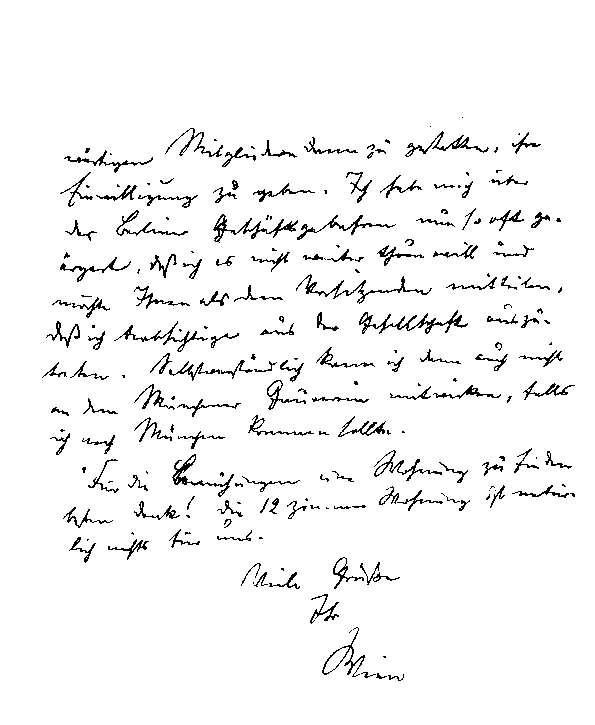 wärtigen Mitgliedern dann zu gestatten, ihre
Einwilligung zu geben. Ich habe mich über
das Berliner Geschäftsgebahren nun so oft ge-
ärgert, daß ich es nicht weiter thun will und
möchte Ihnen als dem Vorsitzenden mitteilen,
daß ich beabsichtige aus der Gesellschaft auszu-
treten. Selbstverständlich kann ich dann auch nicht
an dem Münchener Gauverein mitwirken, falls
ich nach München kommen sollte.
Für die Bemühungen eine Wohnung zu finden
besten Dank! Die 12 Zimmer Wohnung ist natür-
lich nichts für uns.
Viele Grüße
Ihr
Wien